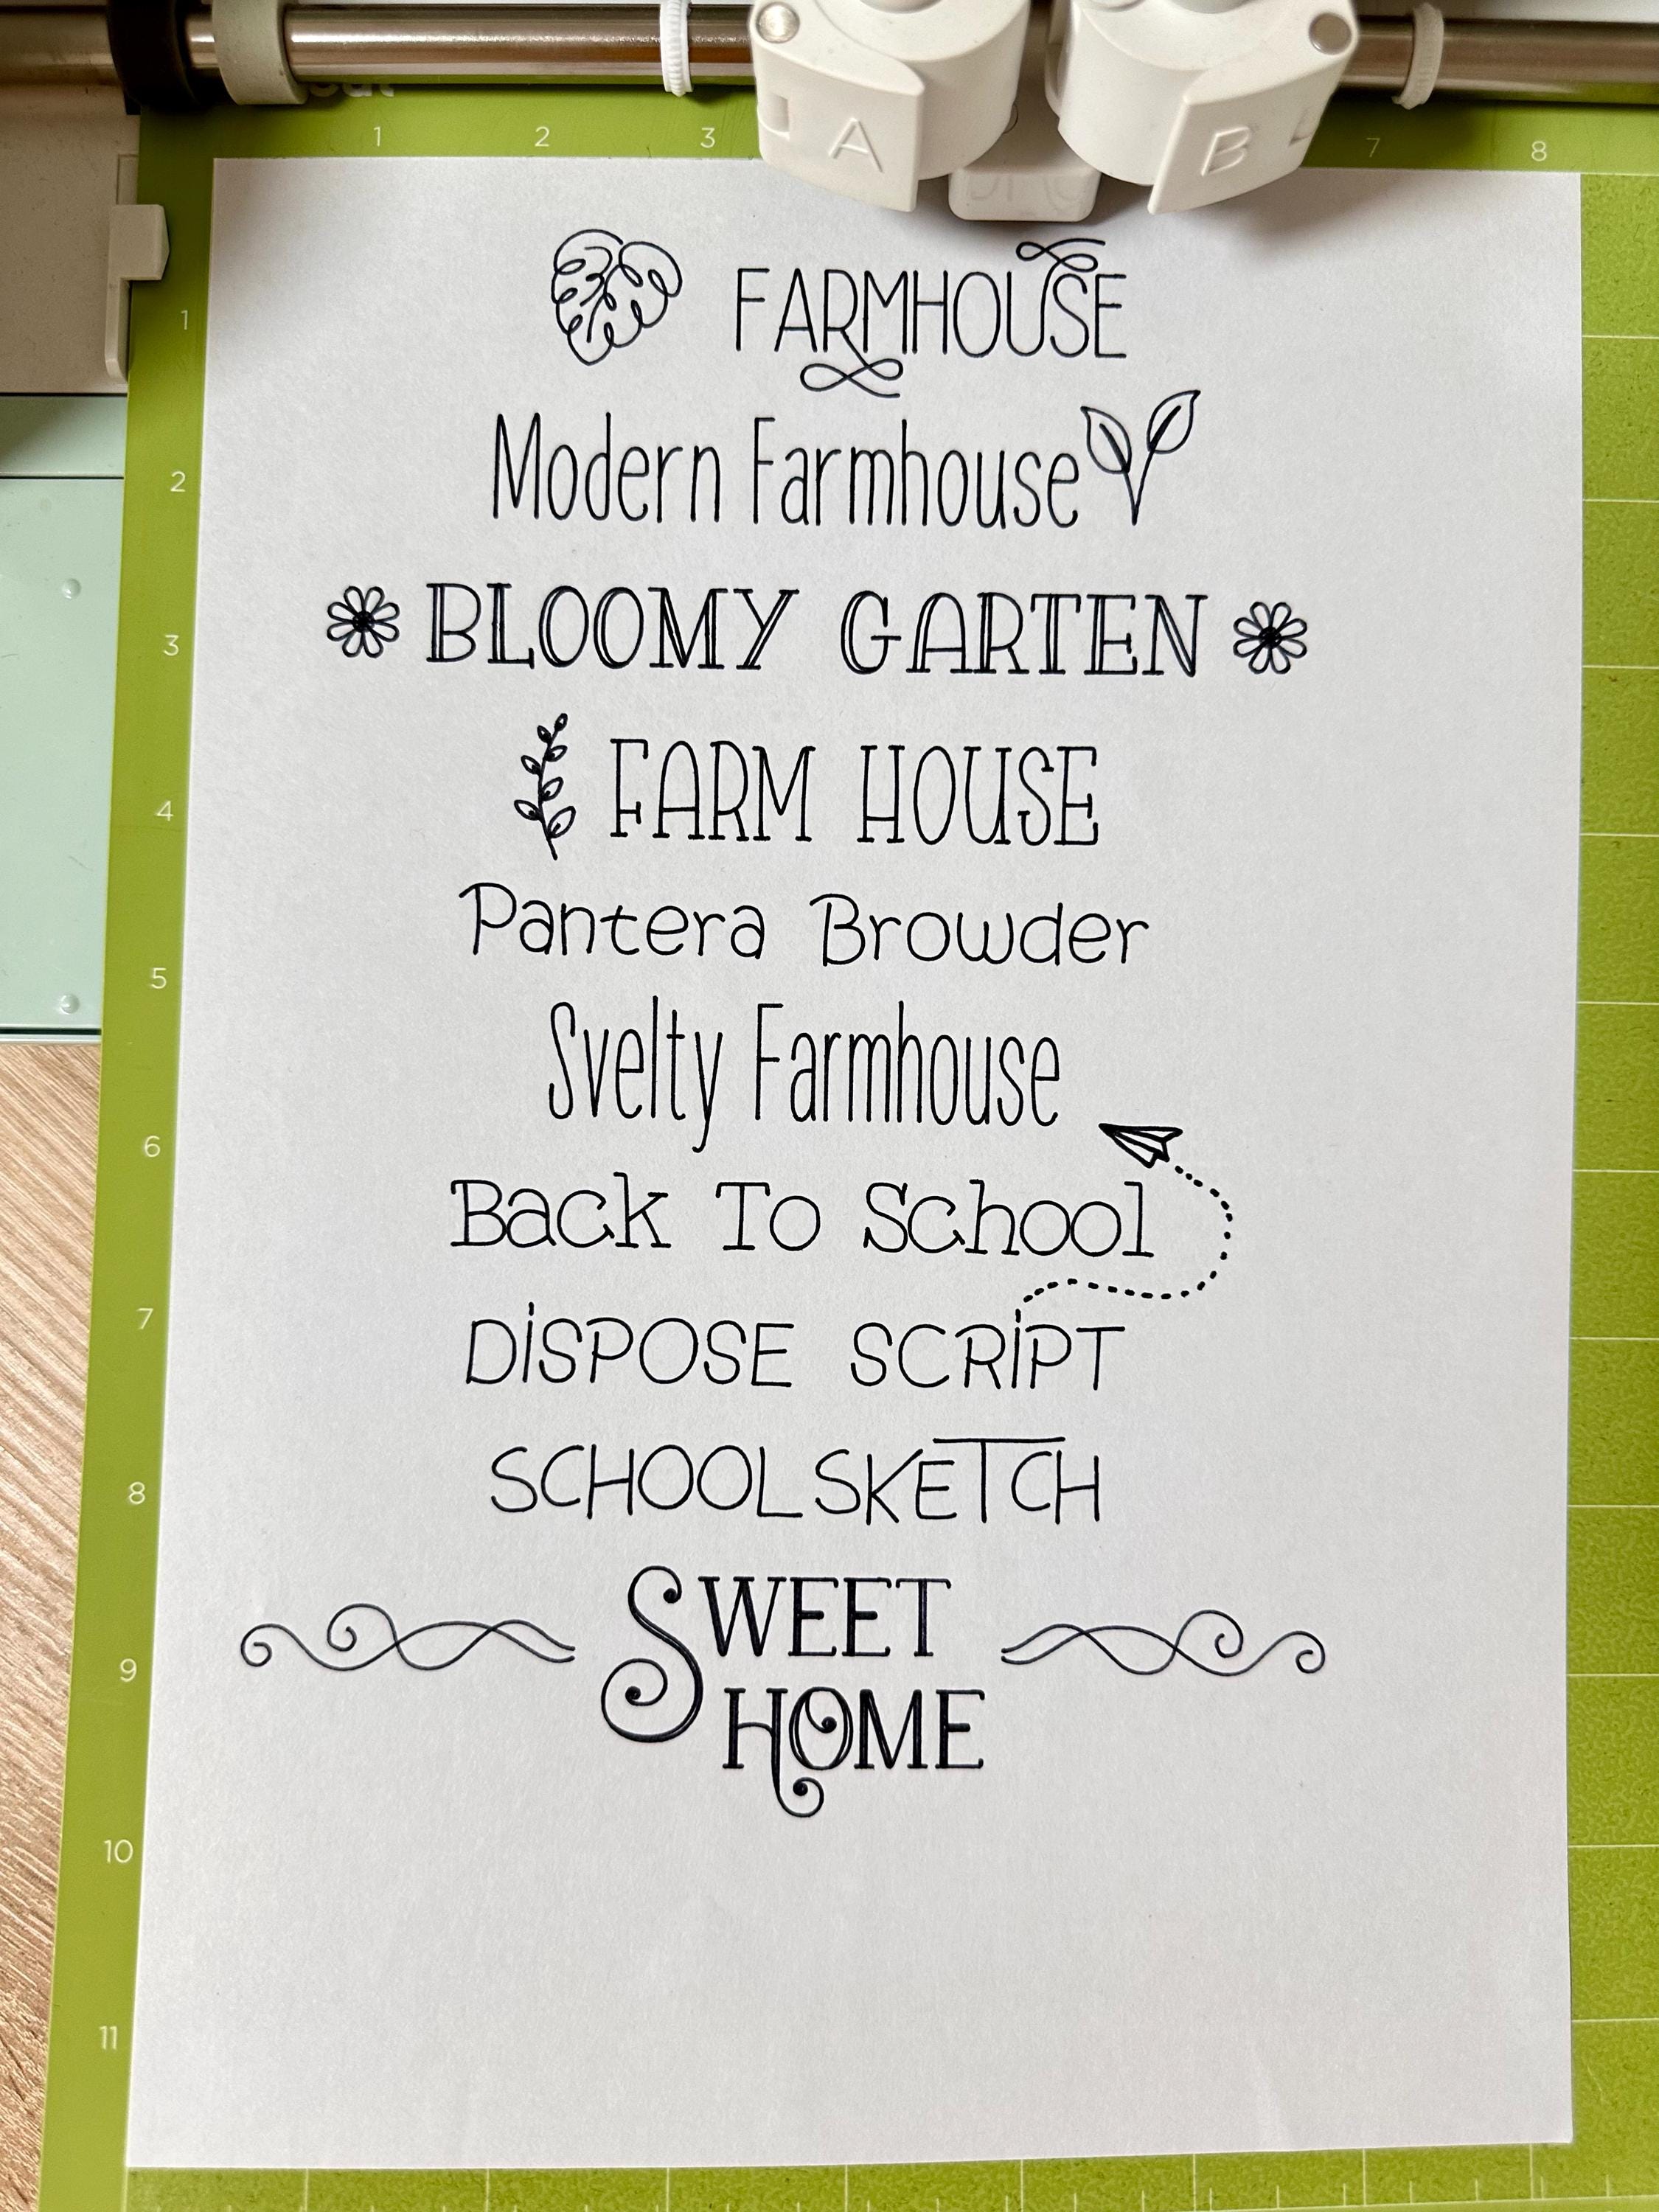 1 2 3 A B 7 8
FARMHOUSE
1
Modern Farmhouse
2
BLOOMY GARTEN
3
FARM HOUSE
4
Pantera Browder
5
Svelty Farmhouse
6
Back To School
7
DiSPOSE SCRiPT
SCHOOLSKETCH
8
SWEET
9
HOME
10
11